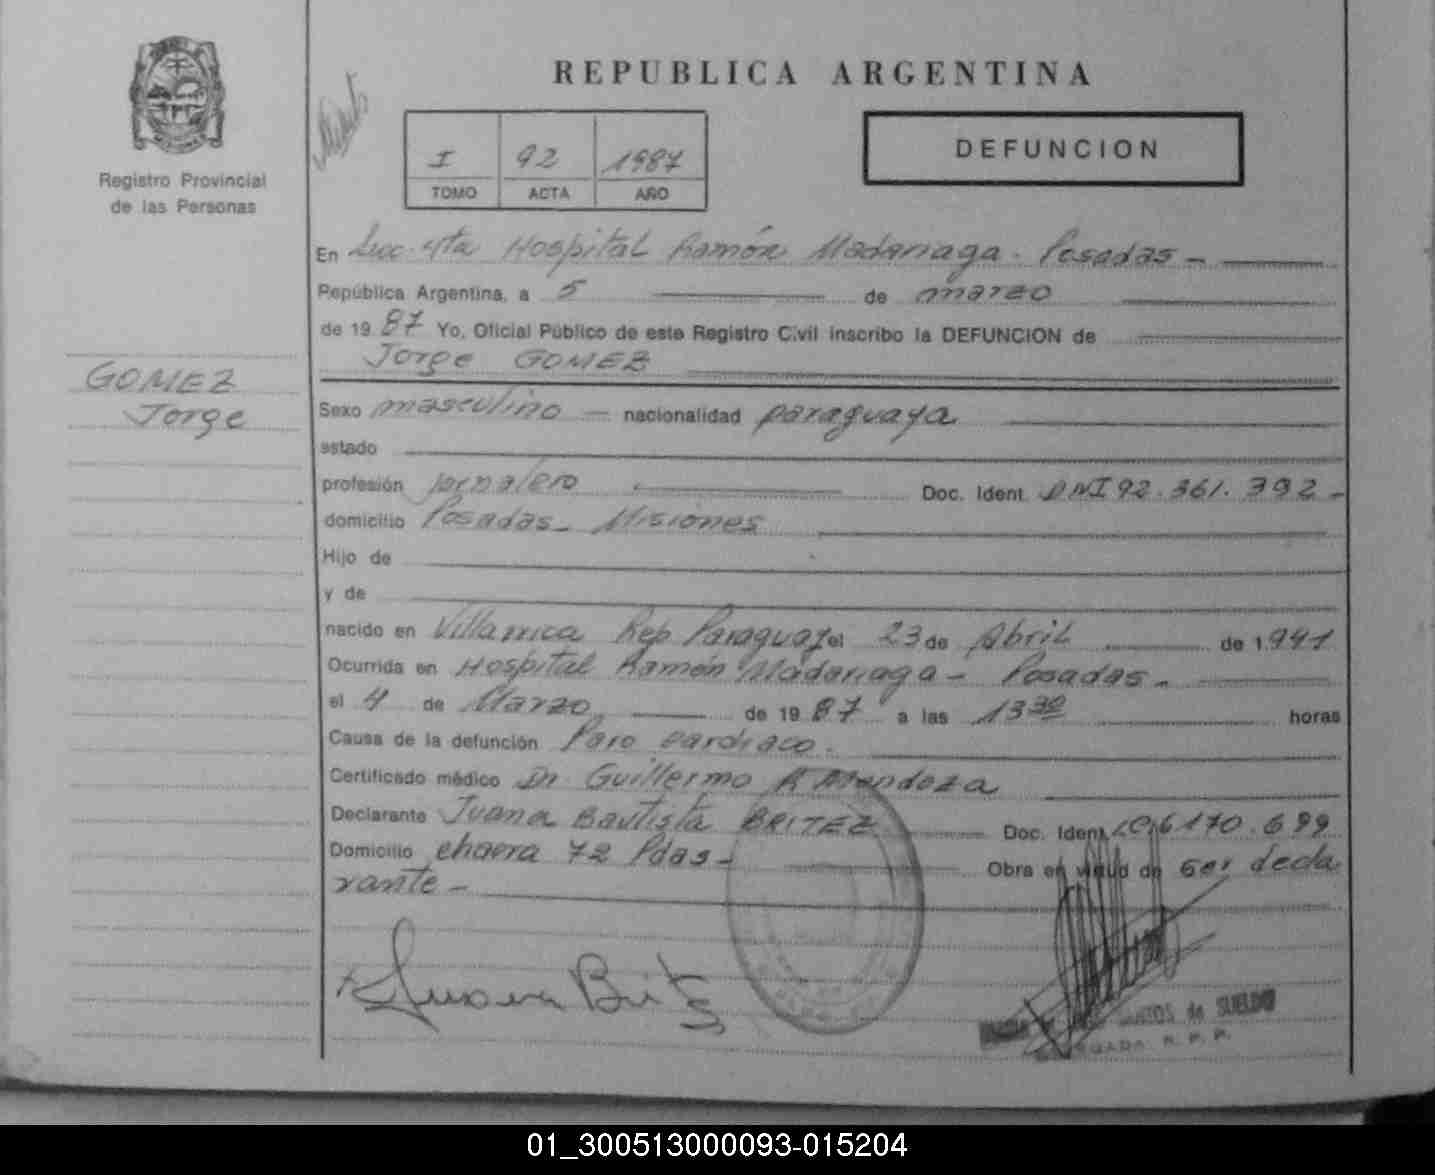 REPUBLICA ARGENTINA
Registro Provincial
de las Personas
I 92 1987
TOMO ACTA AÑO
DEFUNCION
En Suc. 4ta Hospital Ramón Madariaga. Posadas -
República Argentina, a 5 de marzo
de 1987 Yo, Oficial Público de este Registro Civil inscribo la DEFUNCION de
Jorge GOMEZ
GOMEZ
Jorge
Sexo masculino — nacionalidad paraguaya
estado
profesión jornalero Doc. Ident. DNI 92.361.392-
domicilio Posadas - Misiones
Hijo de
y de
nacido en Villarrica Rep Paraguay el 23 de Abril de 1941
Ocurrida en Hospital Ramón Madariaga - Posadas -
el 4 de Marzo de 1987 a las 13 30 horas
Causa de la defunción Paro cardiaco.
Certificado médico Dr Guillermo R Mendoza
Declarante Juana Bautista BRITEZ Doc. Ident. LC 6170.699
Domicilio chacra 72 Pdas - Obra en virtud de ser decla
rante -
Juana Britz
de SUELDO
R. P. P.
01_300513000093-015204